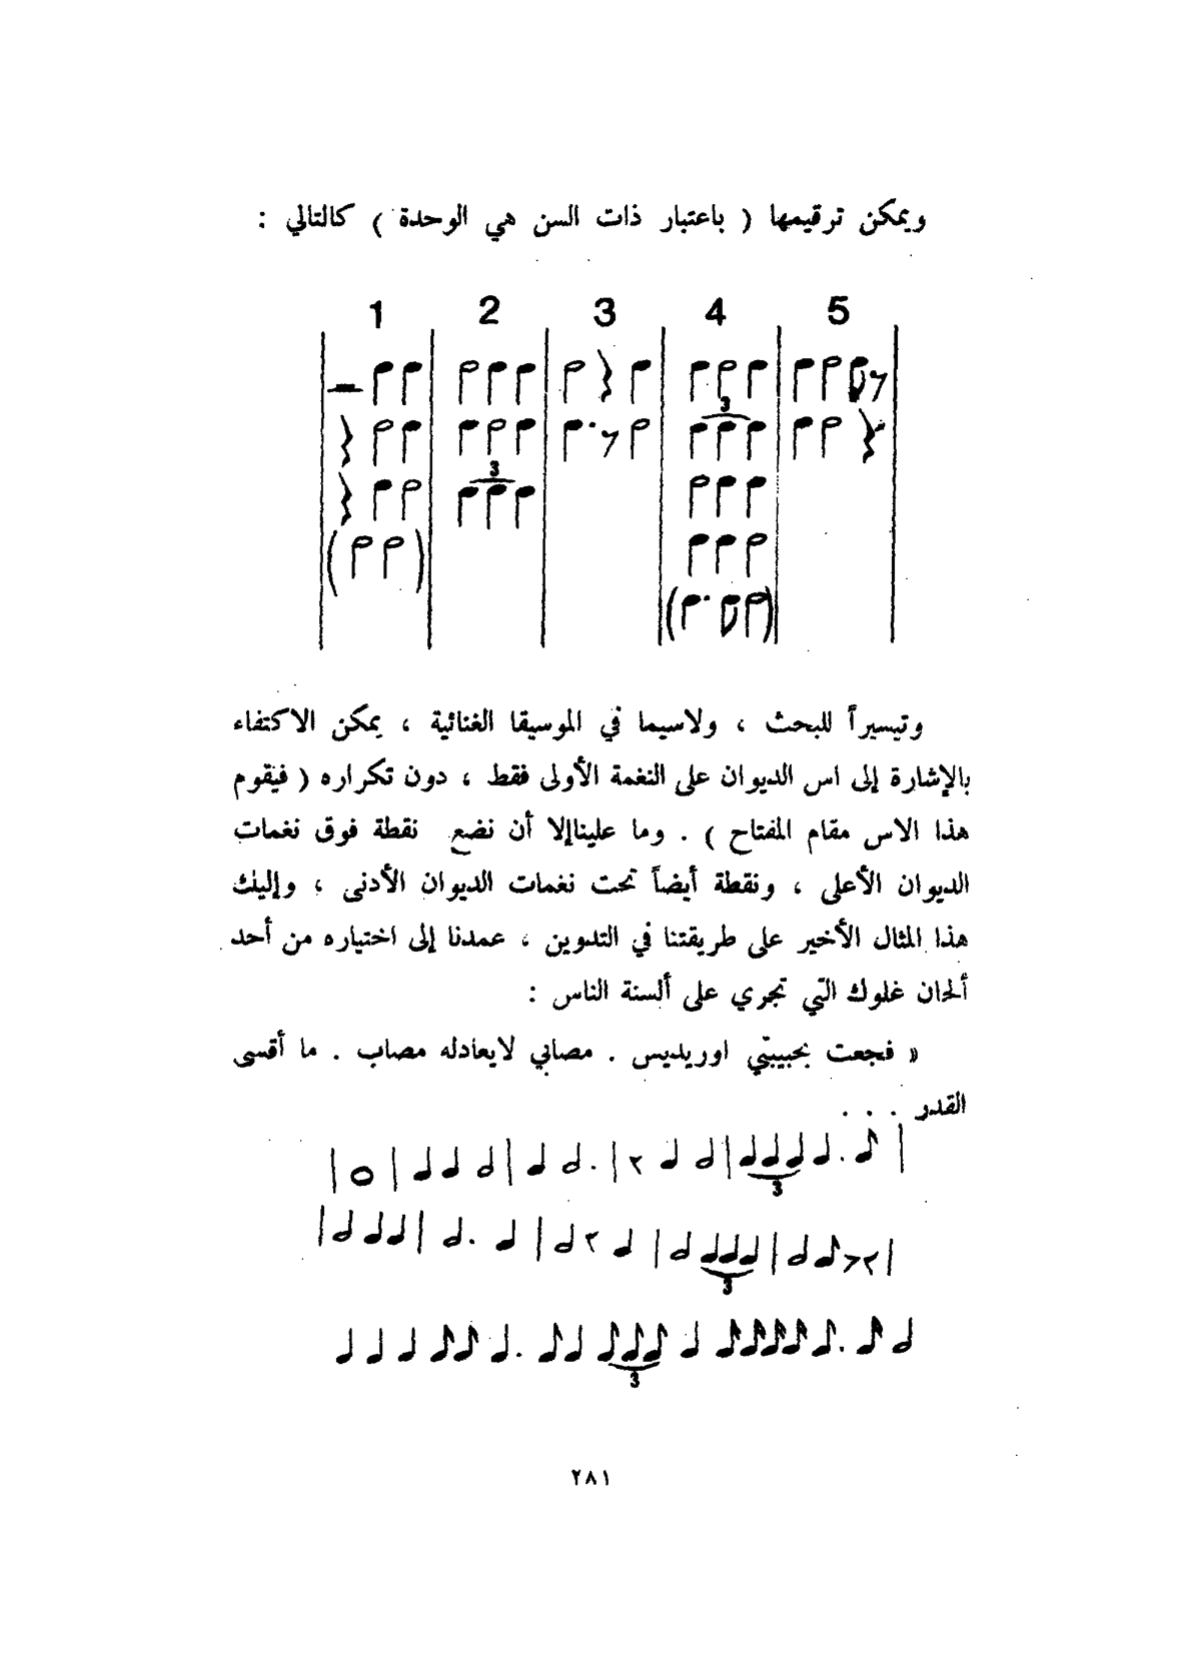 ويمكن ترقيمها ( باعتبار ذات السن هي الوحدة ) كالتالي :
1 2 3 4 5
3
3
وتيسيراً للبحث ، ولاسيما في الموسيقا الغنائية ، يمكن الاكتفاء
بالإشارة إلى اس الديوان على النغمة الأولى فقط ، دون تكراره ( فيقوم
هذا الاس مقام المفتاح ) . وما علينا إلا أن نضع نقطة فوق نغمات
الديوان الأعلى ، ونقطة أيضاً تحت نغمات الديوان الأدنى ، وإليك
هذا المثال الأخير على طريقتنا في التدوين ، عمدنا إلى اختياره من أحد
ألحان غلوك التي تجري على ألسنة الناس :
« فجعت بحبيبتي اوريديس . مصابي لايعادله مصاب . ما أقسى
القدر . . .
3
3
3
٢٨١